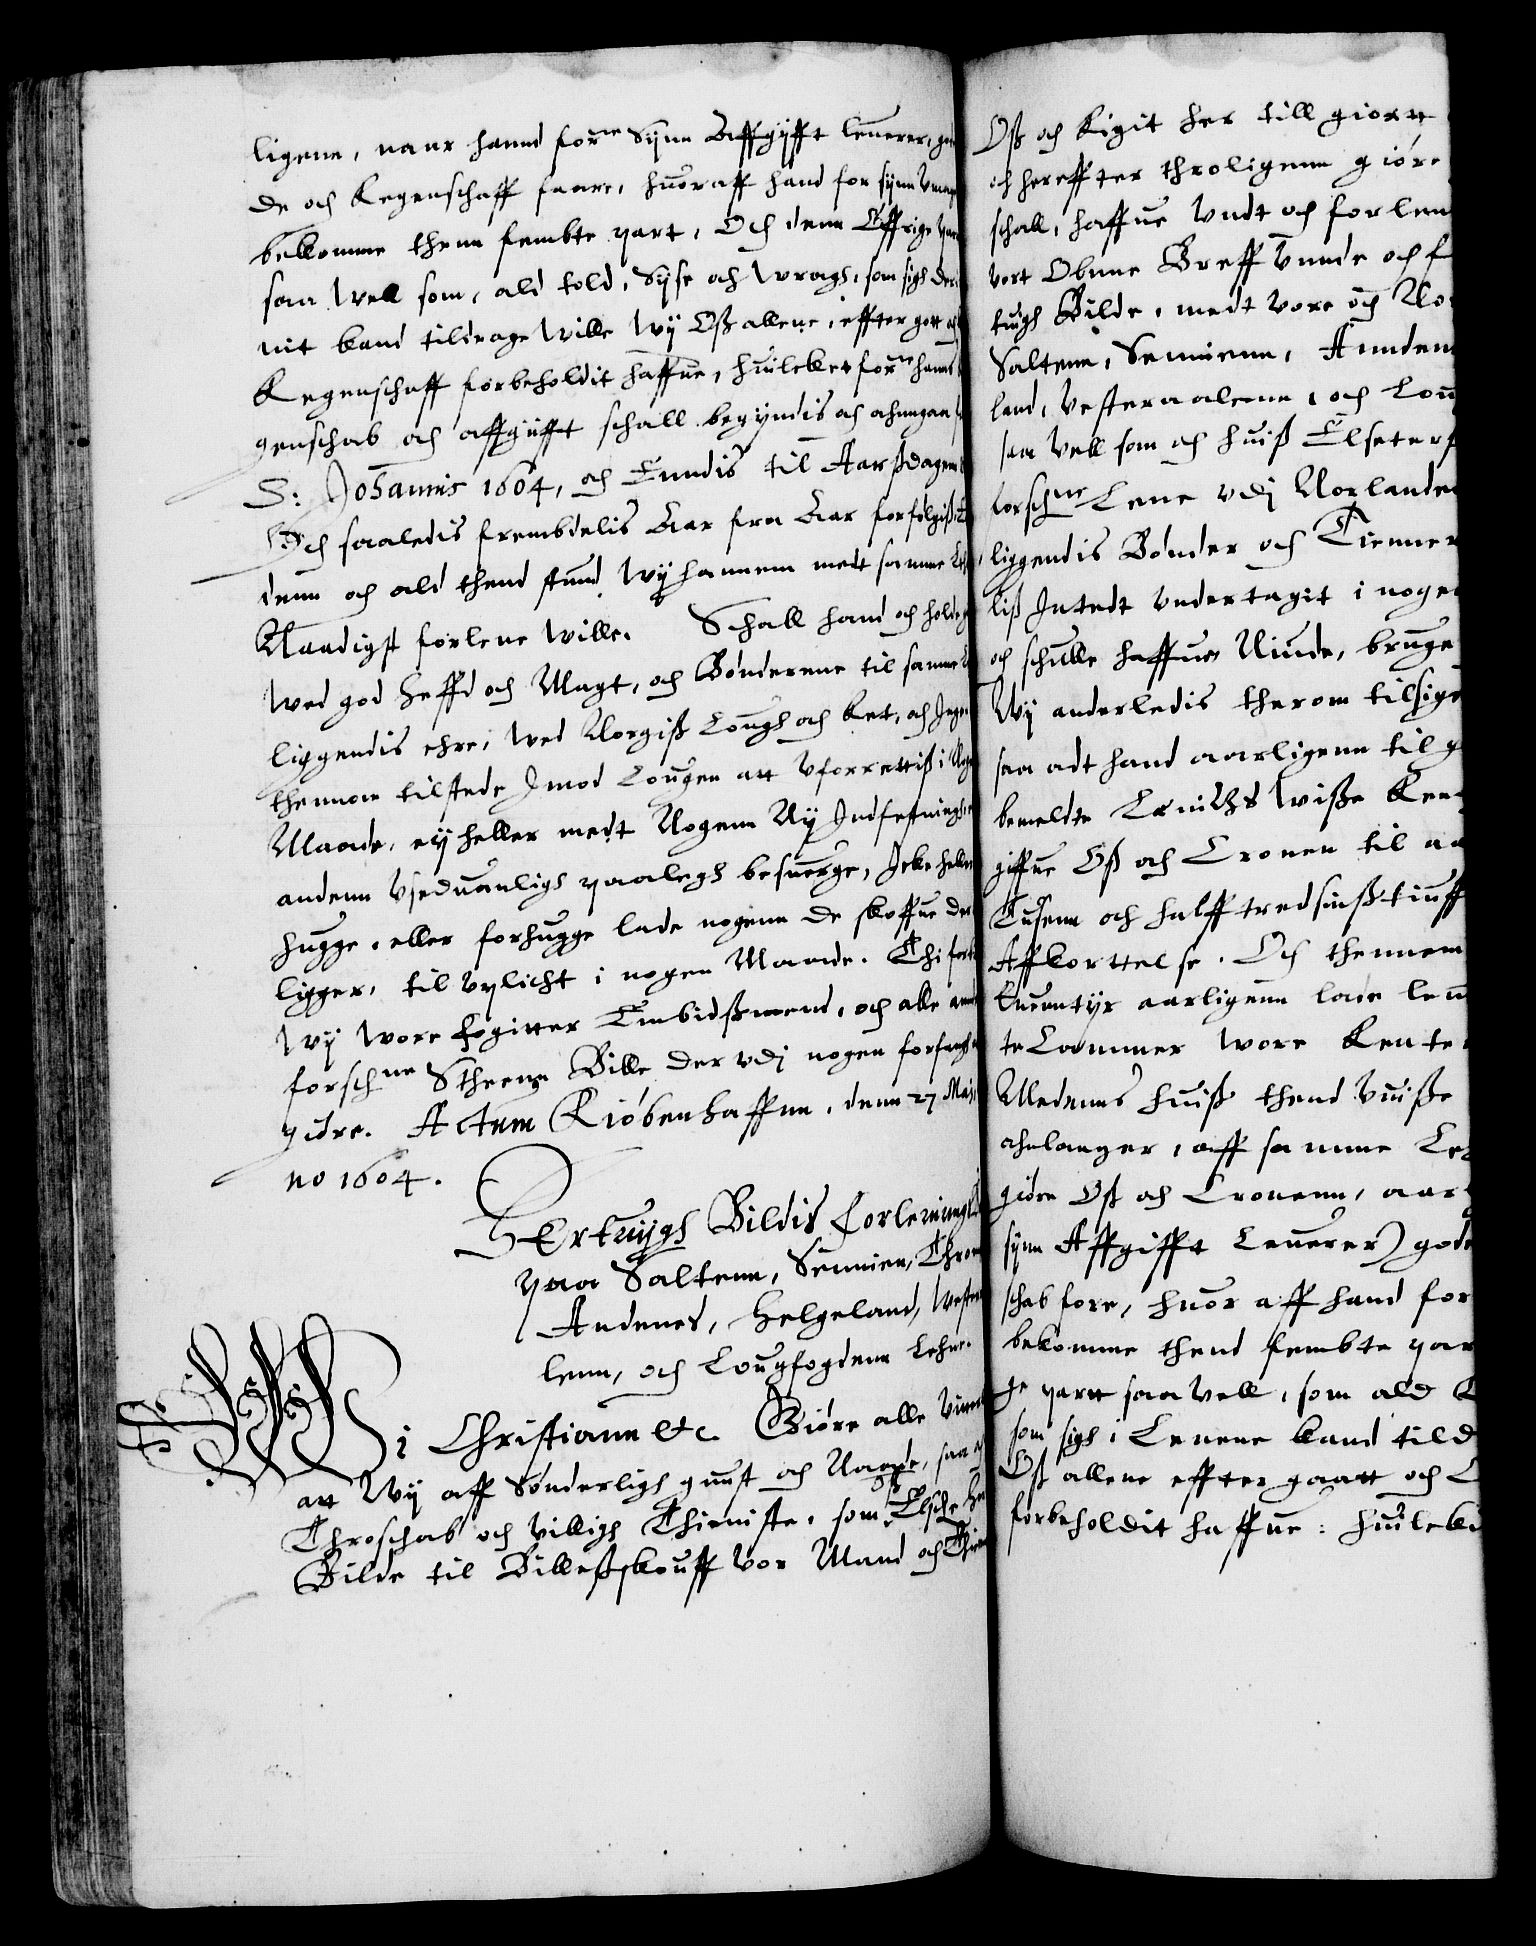 ligenn, naar hannd forne Synn Affgyfft leuerer, go
de och Regenschaff faare, huoraff hand for synn Vmag
bekomme thenn fembte part, Och denn Øffrige par
saa well som, ald told, Syse och Wragh, som sigh der
nit kand tildrage wille Wy Oß allene, effter gott och
Regenschaff forbeholdit haffue, huilcket forne hans
genschab och affgifft schall begyndis och ahnngaa
S: Johannis 1604, och Enndis til Aarßdagenn
Och saaledis frembdelis Aar fra Aar forfølgiß
denn och ald thend stund Wy hannem medt samme
Naadigst forlene wille. Schall hand och holde
wed god heffd och Magt, och Bønderne til samme
liggendis ehre, wed Norgiß Lough och Ret, och Ingen
thennom tilstede Imod Lougen att vforrettiß i Nogen
Maade, ey heller medt Nogenn Ny Indfestningh
andenn vseduanligh paalegh besuerge, Icke heller
hugge, eller forhugge lade nogenn de skoffue der
ligger, til vplicht i nogen Maade. Thi forbiude
Wy wore fogitter Embidßmend, och alle andre
forschne Stheenn Bille der vdj nogen forfangh
giøre. Actum Kiøbenhaffnn, denn 27 Maj,
no 1604.
Hertuigh Bildis Forleningß
paa Saltenn, Sennien, Throm
Andenes, Helgeland, Wester
lenn, och Lougfogdenn Lehne.
Wi Christiann etc. Giøre alle vitter
att Wy aff Sønderligh gunst och Naade, saa och
Throschab och villigh Thieniste, som Elsche Her
Bilde til Billeßskouff vor Mand och Thien
Oß och Rigit her till giortt
och hereffter throligenn giøre
schall, haffue Vndt och forlen
vort Obnne Breff vnnde och f
tuigh Bilde, medt vore och No
Saltenn, Sennienn, Annden
land, Vesteraalenn, och Lou
saa vell som och huiß Elseter
forschne Lene vdj Norlanden
liggendis Bønder och Tienner
liß Intedt vndertagit i nogen
och schulle haffue Niude, bruge
Wy anderledis therom tilsige
saa adt hand aarligenn til g
bemeldte Lenichs wiße Ren
giffue Oß och Cronen til aa
Tusenn och halff tredsinßtiuff
Affkorttelse. Och thennem
Euentyr aarligenn lade leu
te Cammer wore Rente
Medenns huiß thend Vuiße
ahnlanger, aff samme Le
giøre Oß och Cronenn, aar
synn Affgifft Leuerer) gode
schab fore, huor aff hand for
bekomme thend fembte par
ge partt saa vell, som ald
som sigh i Lenene kand tild
Oß allene effter gaatt och
forbeholdit haffue: huilcki